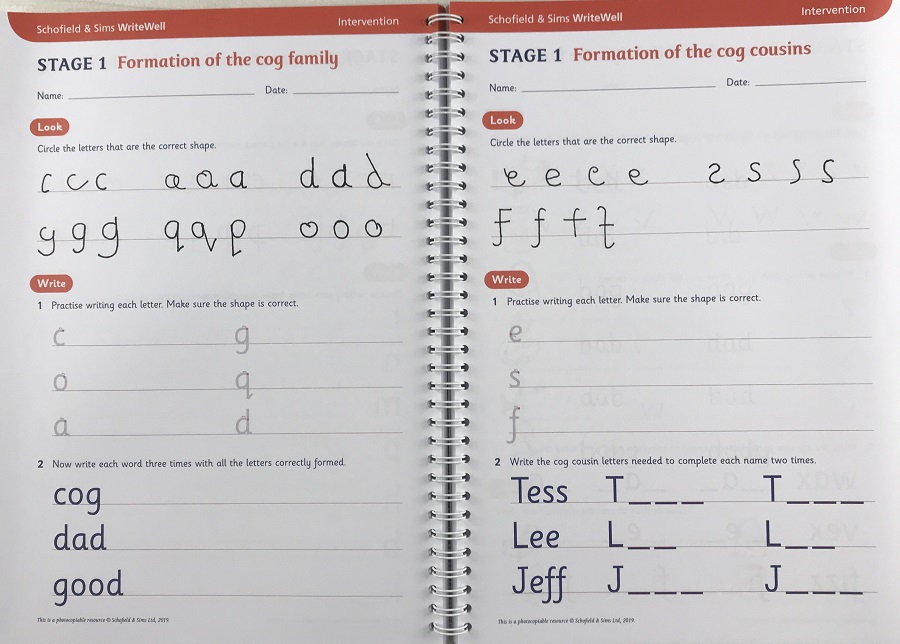 Schofield & Sims WriteWell Intervention
STAGE 1 Formation of the cog family
Name: Date:
Look
Circle the letters that are the correct shape.
c c c a a a d d d
g g g q q q o o o
Write
1 Practise writing each letter. Make sure the shape is correct.
c g
o q
a d
2 Now write each word three times with all the letters correctly formed.
cog
dad
good
This is a photocopiable resource © Schofield & Sims Ltd, 2019.
Schofield & Sims WriteWell Intervention
STAGE 1 Formation of the cog cousins
Name: Date:
Look
Circle the letters that are the correct shape.
e e e e s s s s
f f f f
Write
1 Practise writing each letter. Make sure the shape is correct.
e
s
f
2 Write the cog cousin letters needed to complete each name two times.
Tess T_ _ _ T_ _ _
Lee L_ _ L_ _
Jeff J_ _ _ J_ _ _
This is a photocopiable resource © Schofield & Sims Ltd, 2019.